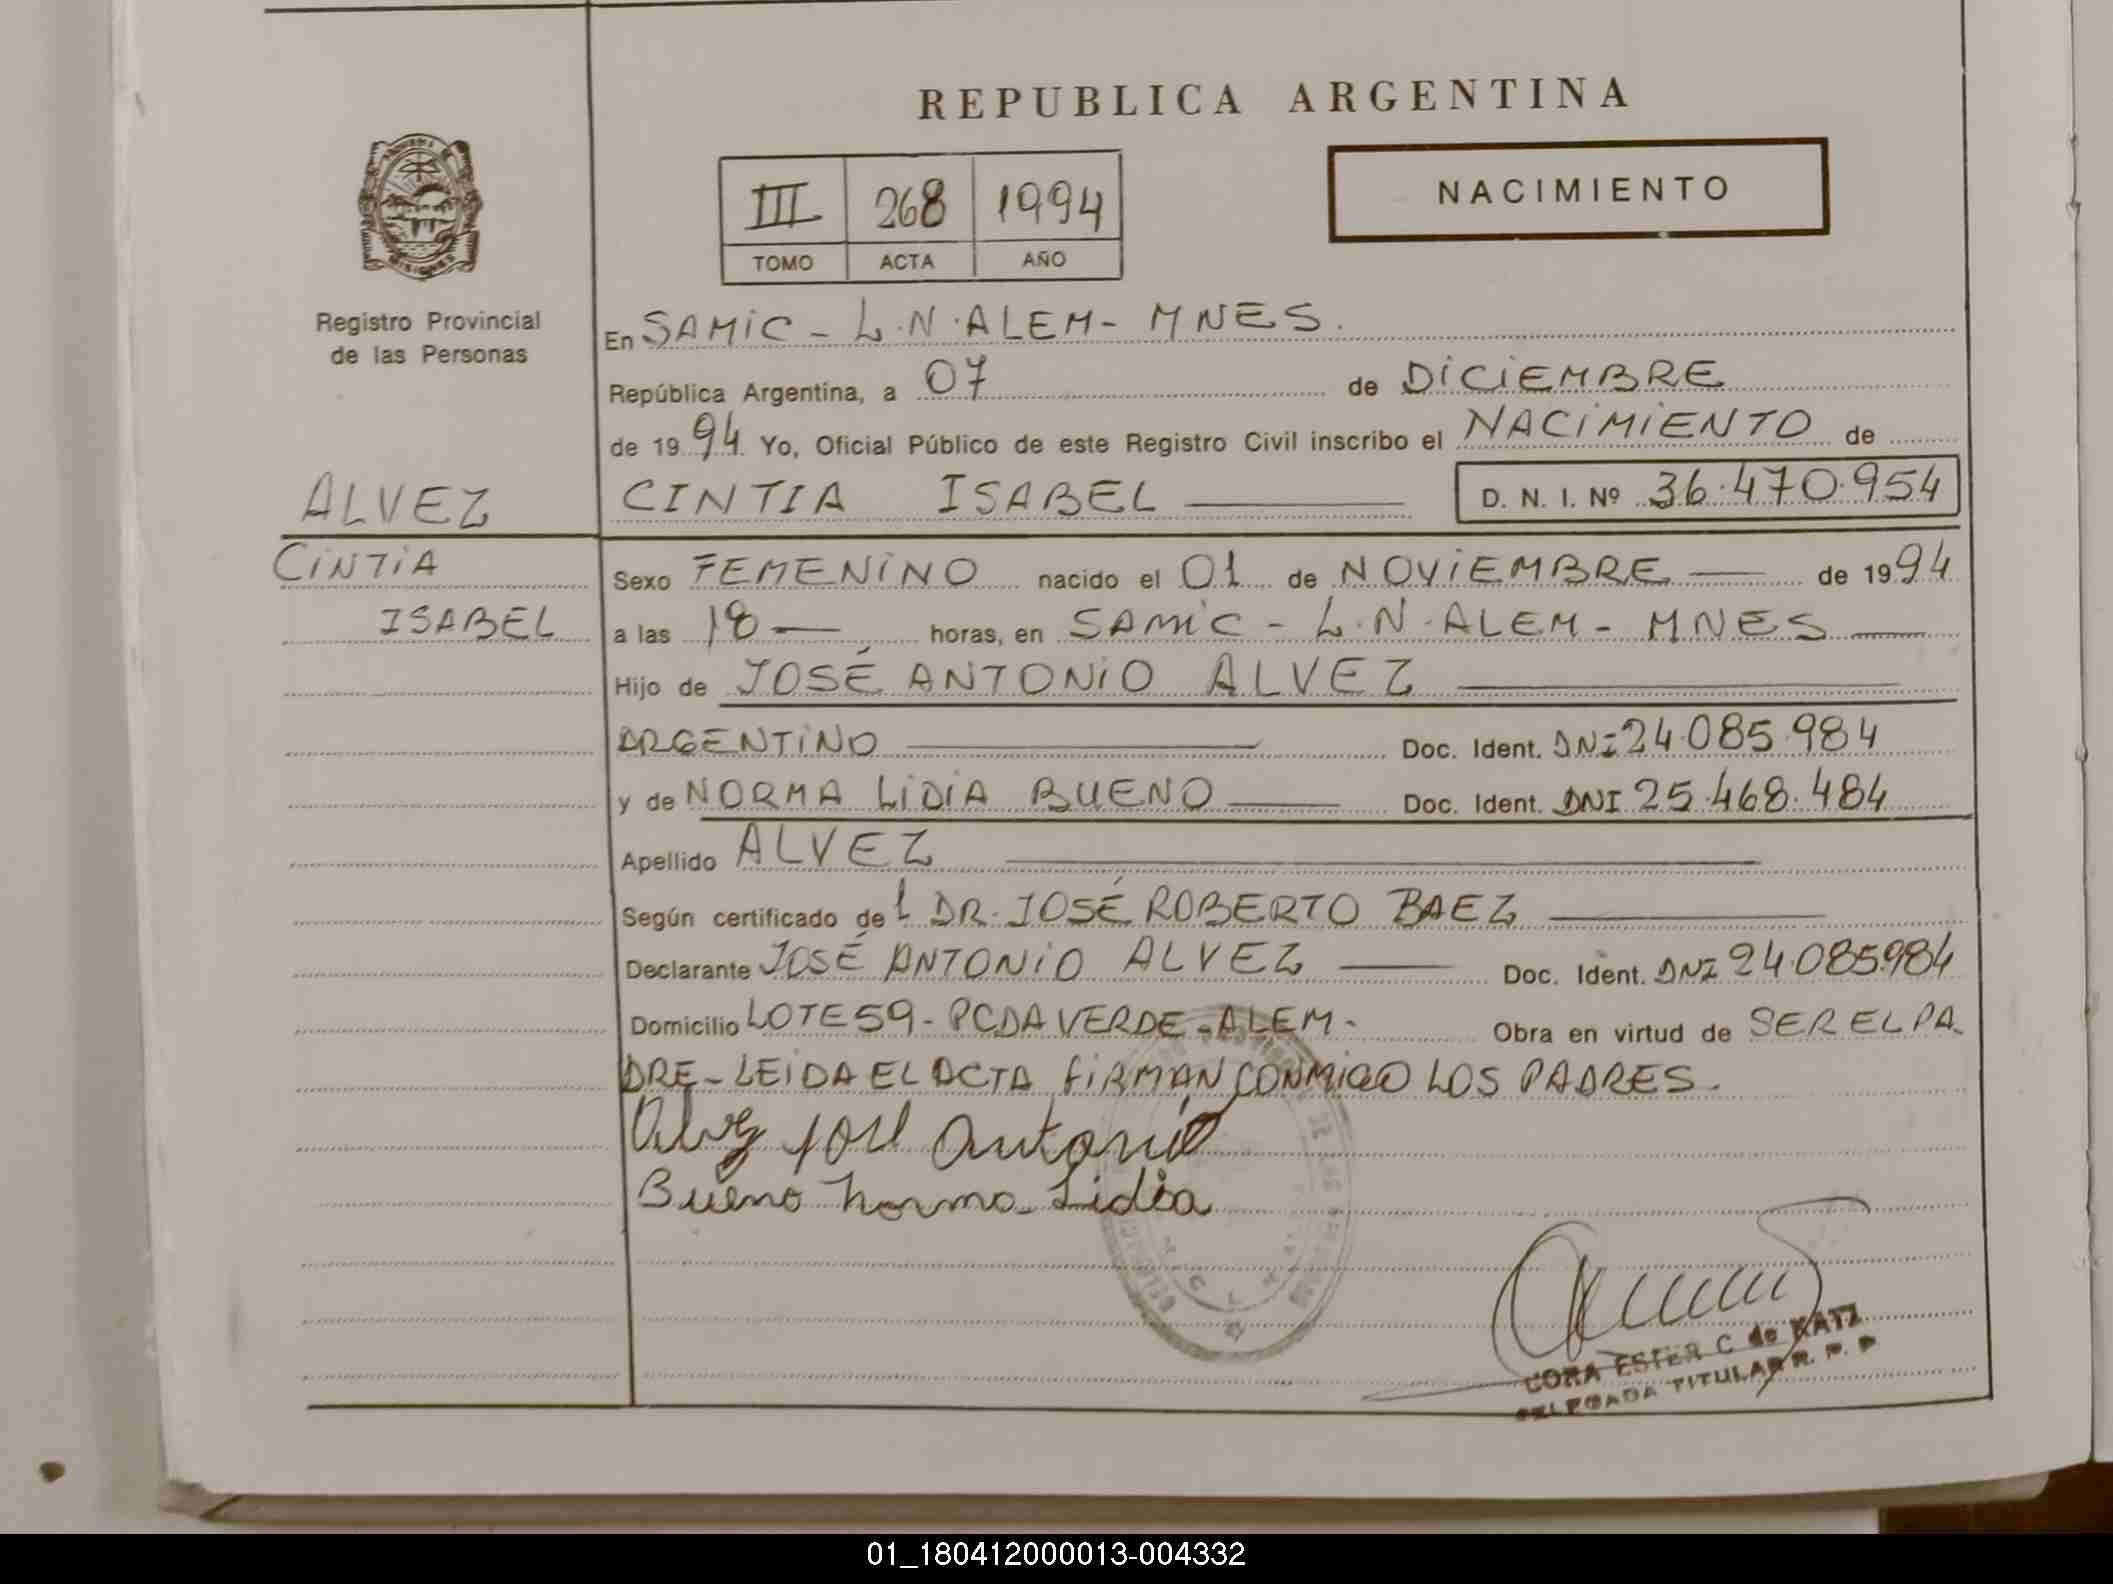 REPUBLICA ARGENTINA
III 268 1994
TOMO ACTA AÑO
NACIMIENTO
Registro Provincial
de las Personas
En SAMIC - L.N.ALEM - MNES.
República Argentina, a 07 de DICIEMBRE
de 1994 Yo, Oficial Público de este Registro Civil inscribo el NACIMIENTO de
ALVEZ
CINTIA
ISABEL
CINTIA ISABEL D. N. I. Nº 36.470.954
Sexo FEMENINO nacido el 01 de NOVIEMBRE de 1994
a las 18 horas, en SAMIC - L.N.ALEM - MNES
Hijo de JOSÉ ANTONIO ALVEZ
ARGENTINO Doc. Ident. DNI 24.085.984
y de NORMA LIDIA BUENO Doc. Ident. DNI 25.468.484
Apellido ALVEZ
Según certificado del DR. JOSÉ ROBERTO BAEZ
Declarante JOSÉ ANTONIO ALVEZ Doc. Ident. DNI 24.085.984
Domicilio LOTE 59 - PCDA VERDE - ALEM. Obra en virtud de SER EL PA-
DRE - LEIDA EL ACTA FIRMAN CONMIGO LOS PADRES.
Alvez José Antonio
Bueno Norma Lidia
CORA ESTER C de KATZ
DELEGADA TITULAR R. P. P
01_180412000013-004332